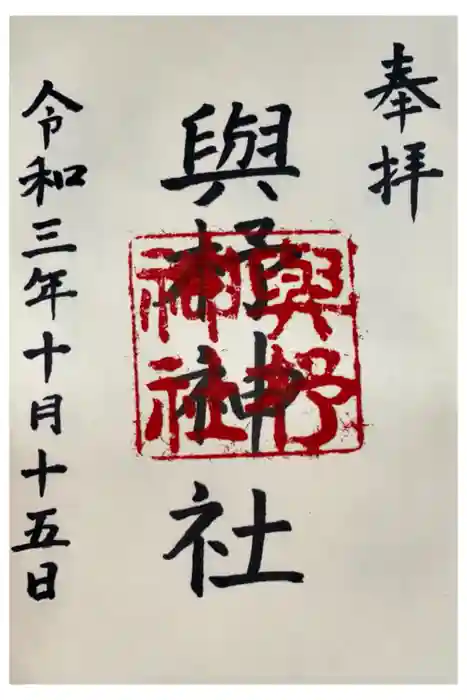 奉拝
與杼神社
令和三年十月十五日
與杼
神社